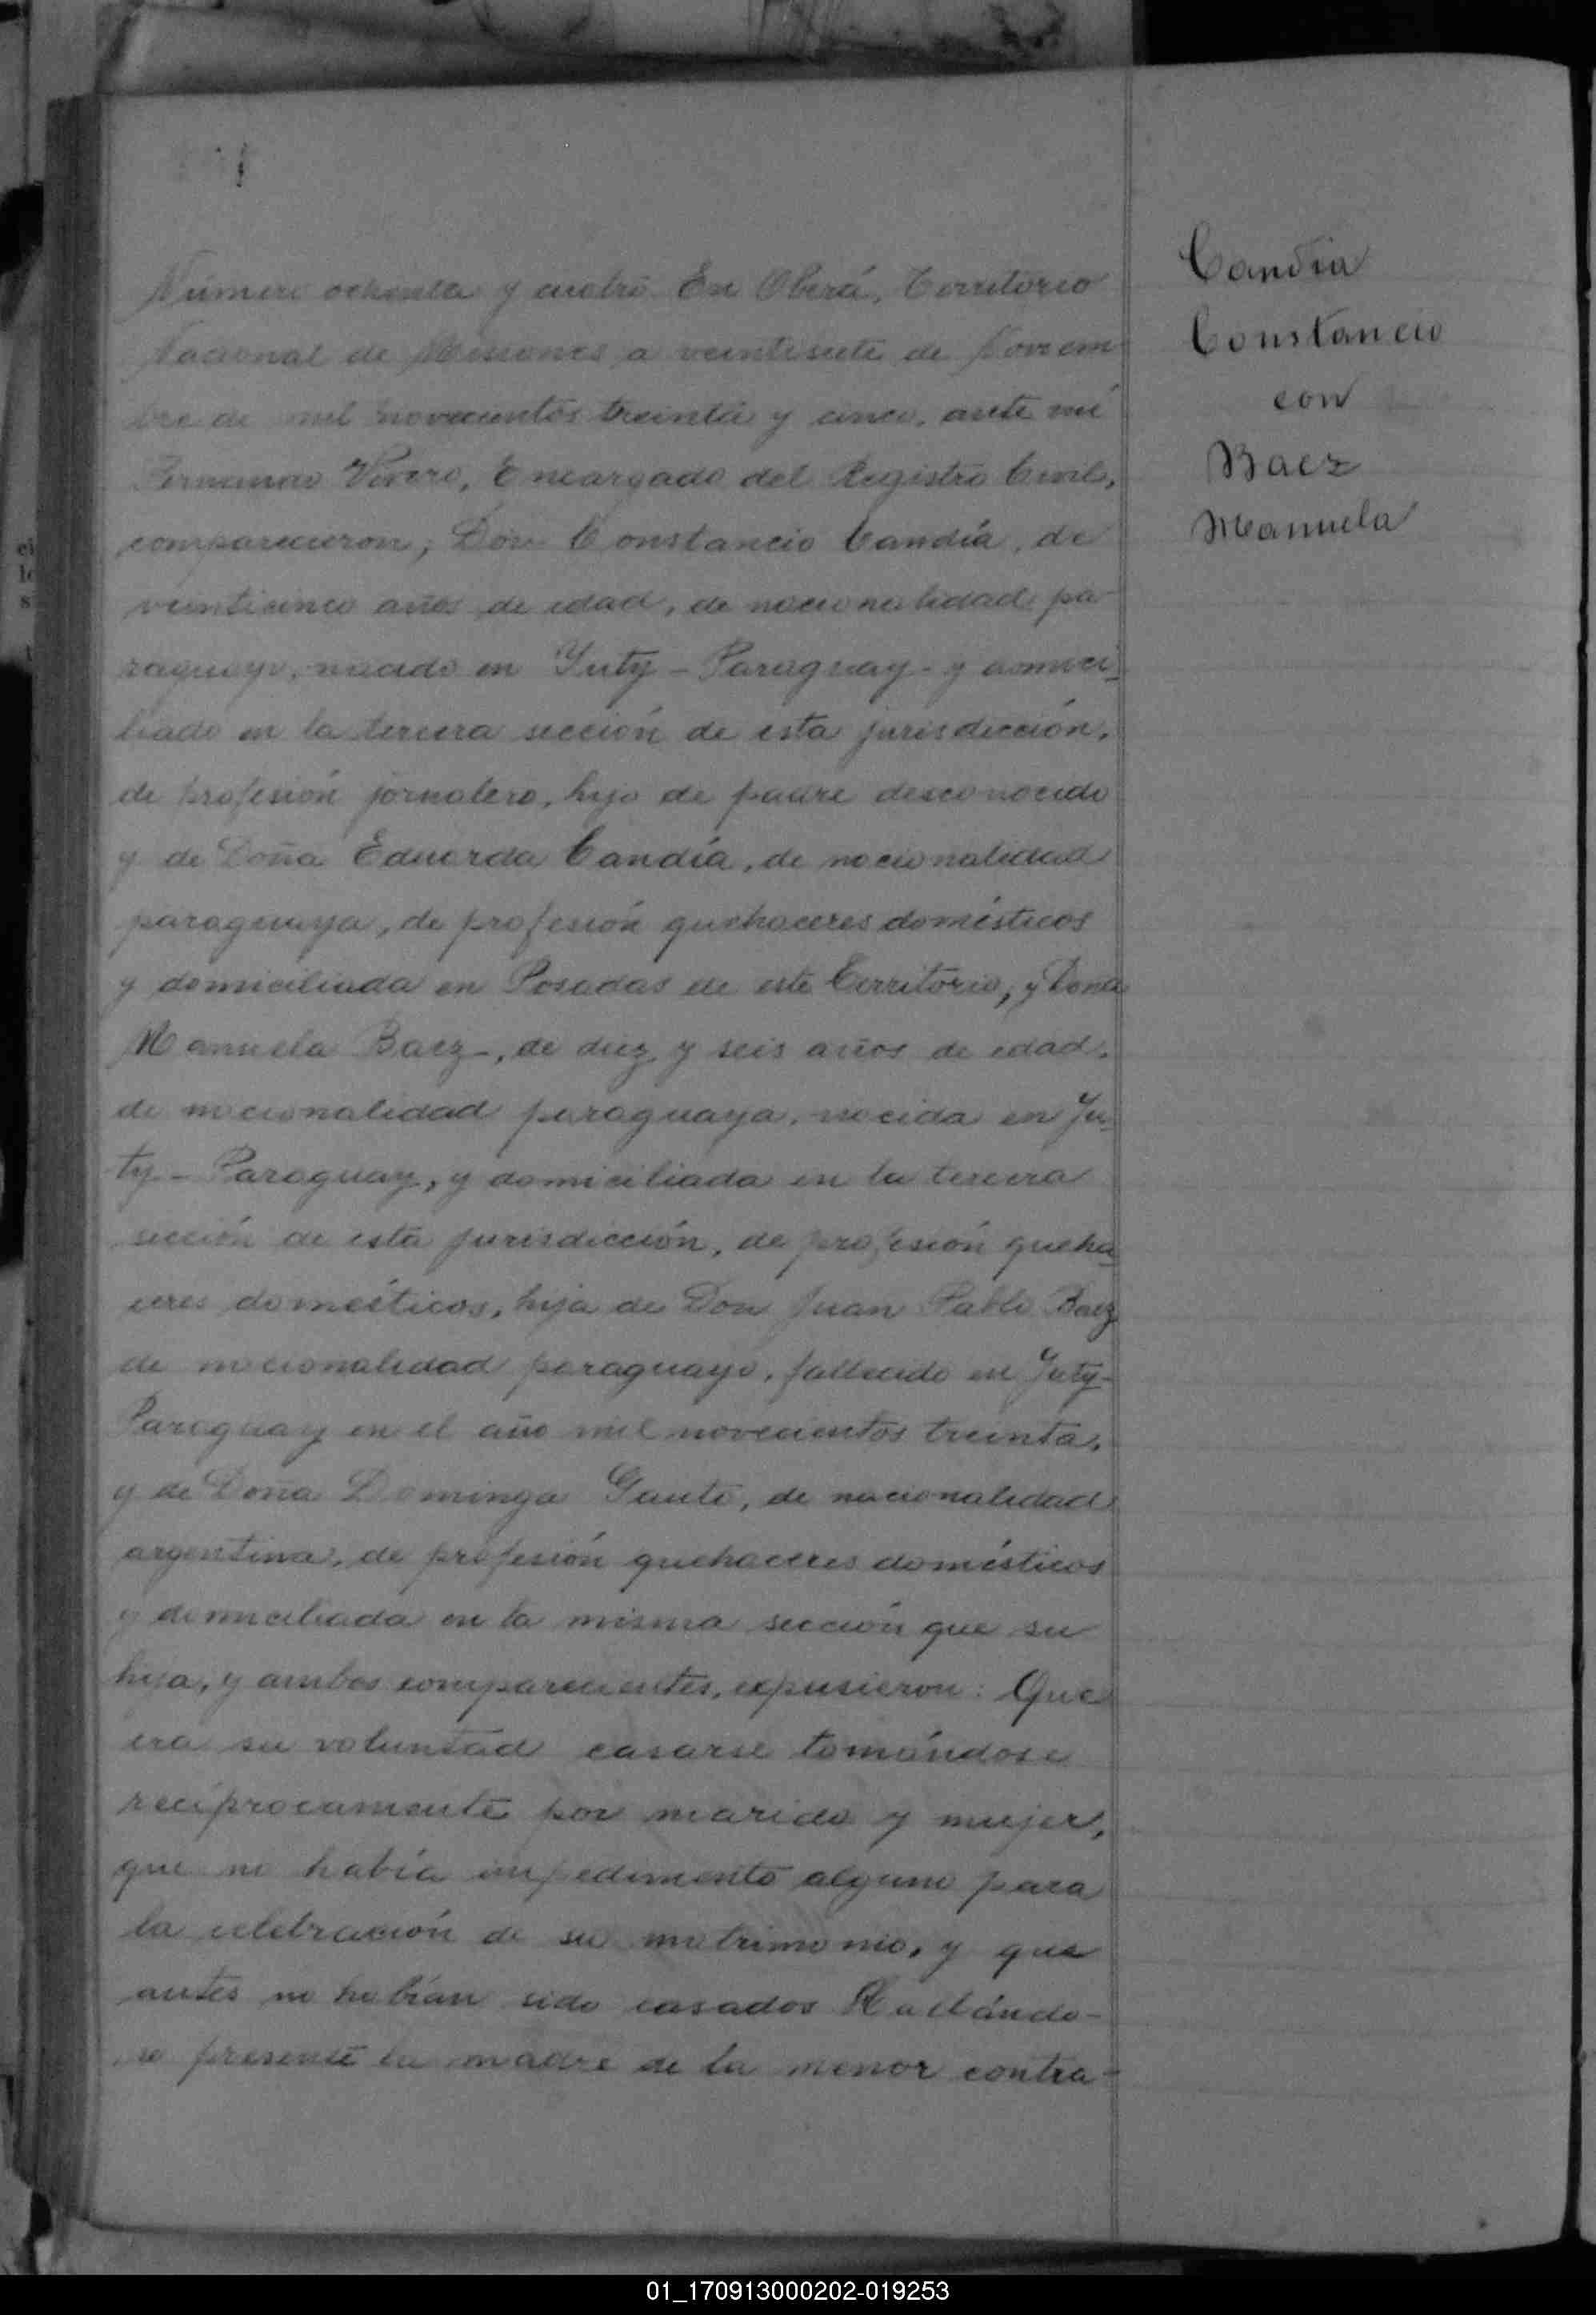 Número ochenta y cuatro En Oberá, Territorio
Nacional de Misiones a veintisiete de Noviem-
bre de mil novecientos treinta y cinco, ante mí
Fernando Vivero, Encargado del Registro Civil,
comparecieron; Don Constancio Candía, de
veinticinco años de edad, de nacionalidad pa-
raguayo, nacido en Yuty - Paraguay - y domici-
liado en la tercera sección de esta jurisdicción,
de profesión jornalero, hijo de padre desconocido
y de Doña Eduarda Candía, de nacionalidad
paraguaya, de profesión quehaceres domésticos
y domiciliada en Posadas de este Territorio; y Doña
Manuela Baez-, de diez y seis años de edad,
de nacionalidad paraguaya, nacida en Yu-
ty - Paraguay, y domiciliada en la tercera
sección de esta jurisdicción, de profesión queha-
ceres domésticos, hija de Don Juan Pablo Baez
de nacionalidad paraguayo, fallecido en Yuty-
Paraguay en el año mil novecientos treinta,
y de Doña Dominga Gauto, de nacionalidad
argentina, de profesión quehaceres domésticos
y domiciliada en la misma sección que su
hija, y ambos comparecientes, expusieron: Que
era su voluntad casarse tomándose
recíprocamente por marido y mujer,
que no había impedimento alguno para
la celebración de su matrimonio, y que
antes no habían sido casados Hallándo-
se presente la madre de la menor contra-
Candia
Constancio
con
Baez
Manuela
01_170913000202-019253